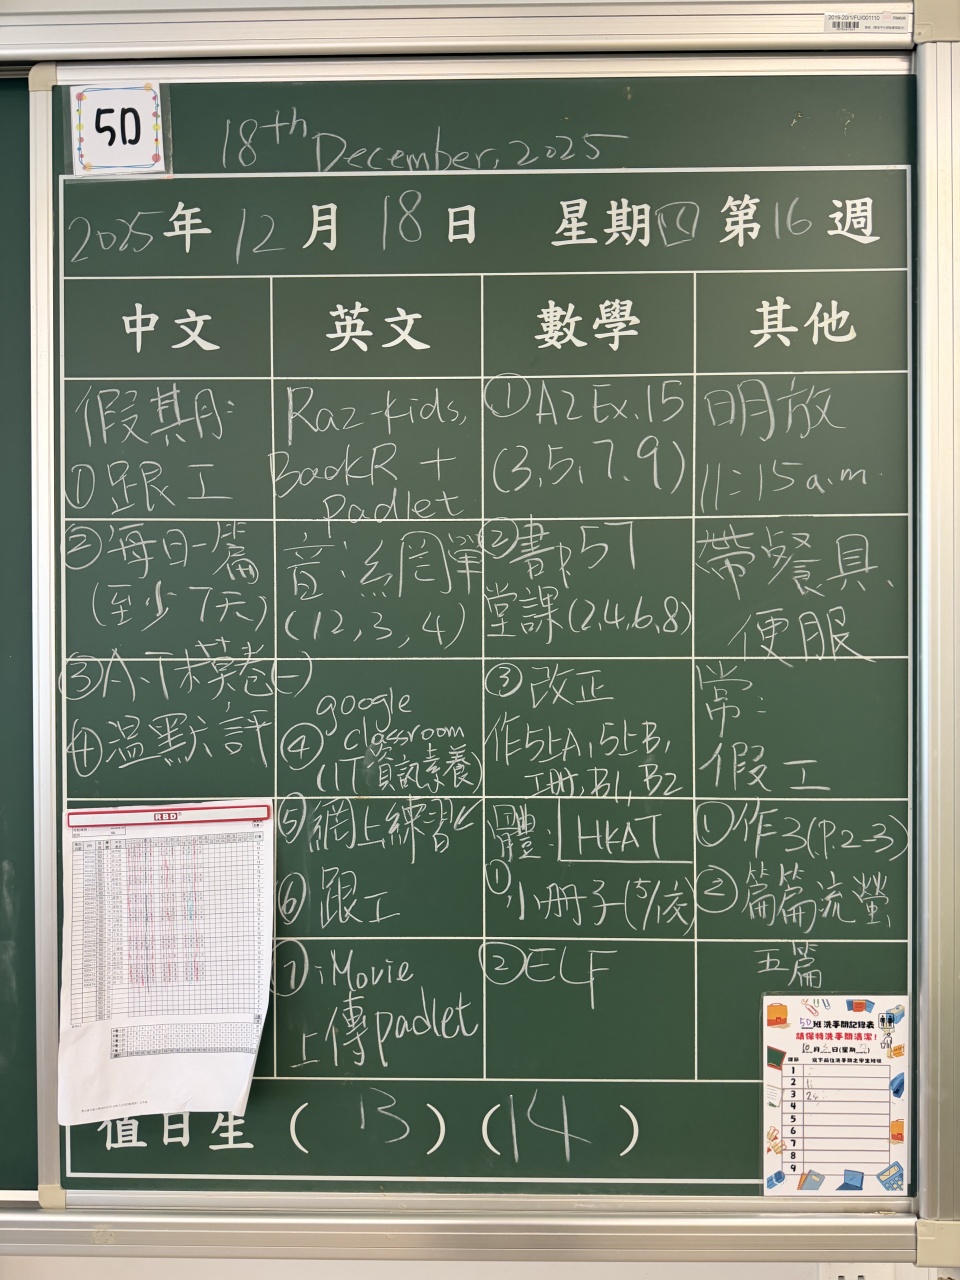 2019-20/1/FU/001110
5D
18th December, 2025
2025年 12月 18日 星期四 第16週
中文
英文
數學
其他
假期:
①跟工
②每日一篇
(至少7天)
③A.T模卷(一)
④溫默、評
Raz-kids,
BookR +
padlet
音:網單
(12,3,4)
google
④classroom
(IT資訊素養)
⑤網上練習
⑥跟工
⑦iMovie
上傳padlet
①A2 Ex.15
(3,5,7,9)
②書P.57
堂課(2,4,6,8)
③改正
作5上A,5上B,
工册,B1,B2
體: HKAT
①小册子(5/夜)
②ELF
明放
11:15a.m.
帶餐具、
便服
常:
假工
①作3(P.2-3)
②篇篇流螢
五篇
RBD
值日生 (13) (14)
5D班洗手間記錄表
請保持洗手間清潔!
10月 日(星期 )
課節
寫下前往洗手間之學生班號
1
2
3 24
4
5
6
7
8
9